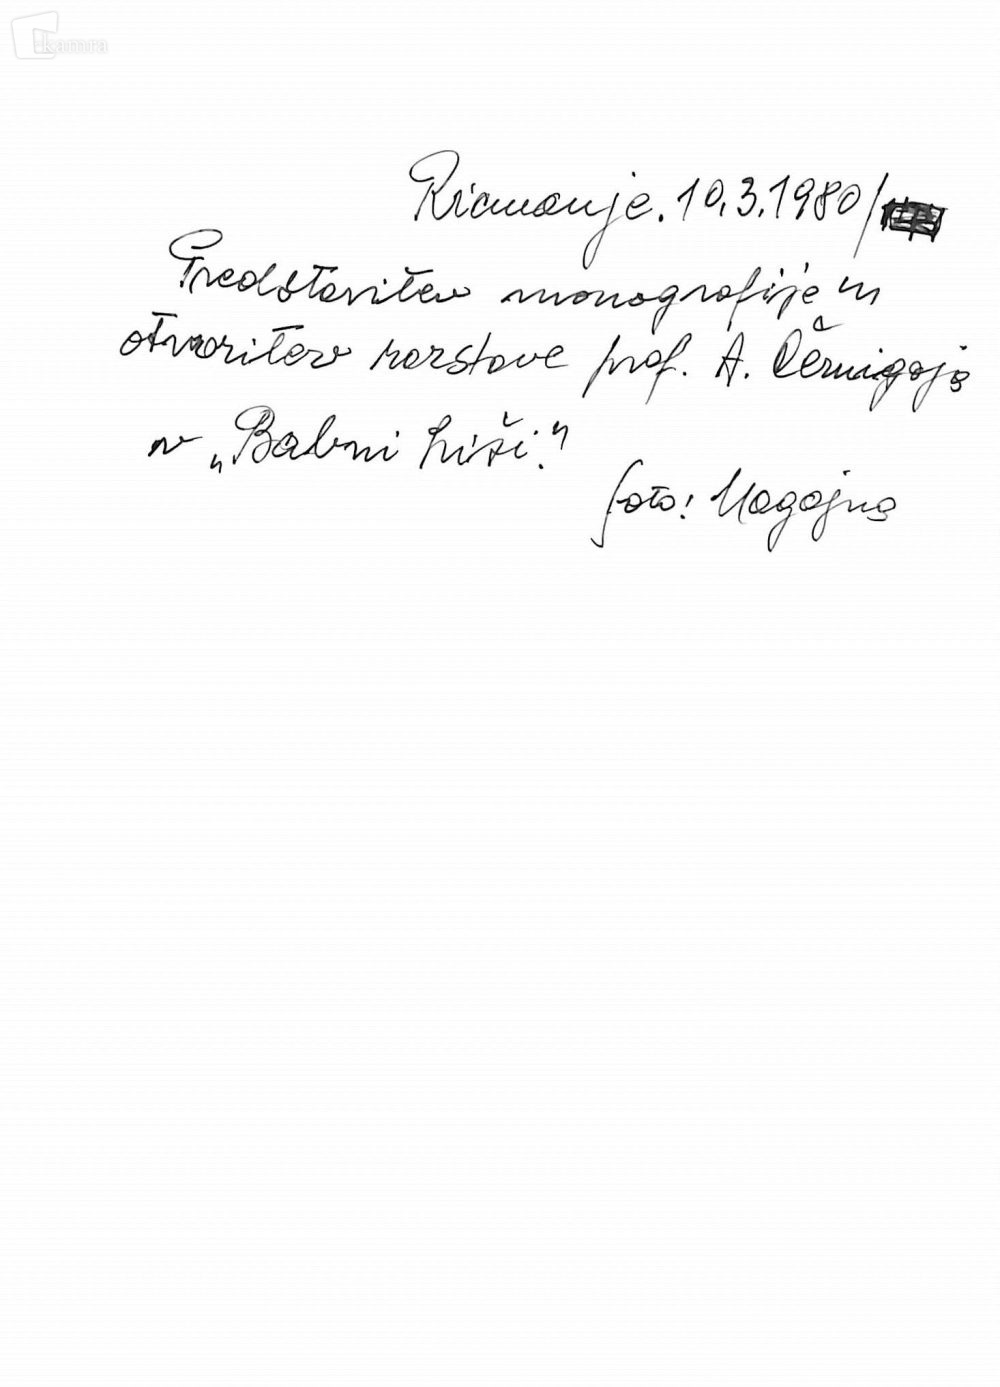 kamra
Ricmanje. 10.3.1980/
Predstavitev monografije in
otvoritev razstave prof. A. Černigoja
v „Babni hiši."
foto: Magajna